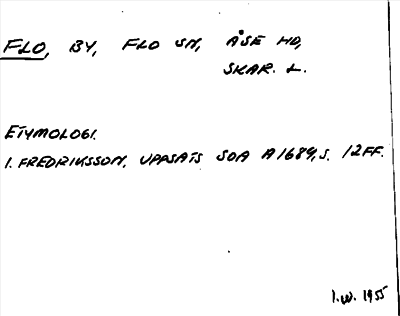 FLO, BY, FLO SN, ÅSE HD,
SKAR. L.
ETYMOLOGI.
I. FREDRIKSSON, UPPSATS SOA A 1689, S. 12FF.
I.W. 1955